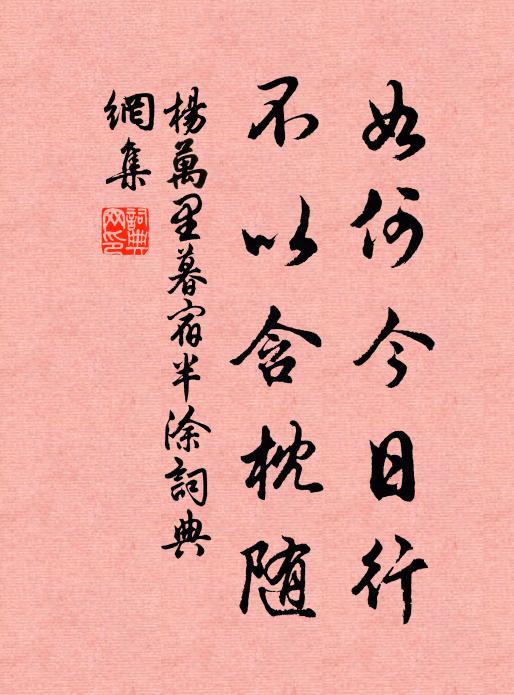 如何今日行
不以含枕随
楊萬里暮宿半涂詞典
網集
詞典
网印